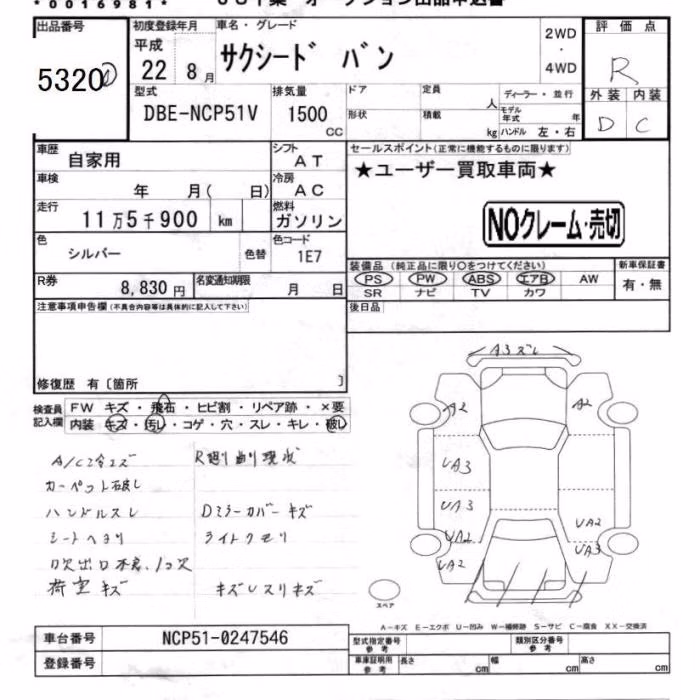 *0016981*
出品番号
5320
初度登録年月
平成
22 8月
車名・グレード
サクシード バン
2WD
・
4WD
評価点
R
外装 内装
D C
型式
DBE-NCP51V
排気量
1500
CC
ドア
形状
定員
人
積載
kg
ディーラー・並行
モデル年式 年
ハンドル 左・右
車歴 自家用
シフト AT
車検 年 月( 日)
冷房 AC
走行 11万5千900 km
燃料 ガソリン
色 シルバー 色替
色コード 1E7
R券 8,830円
名変通知期限 月 日
セールスポイント(正常に機能するものに限ります)
★ユーザー買取車両★
NOクレーム・売切
装備品 (純正品に限り○をつけてください)
PS PW ABS エアB AW
SR ナビ TV カワ
新車保証書
有・無
後日品
注意事項申告欄(不具合内容等は具体的に記入して下さい)
修復歴 有〔箇所 〕
検査員記入欄
FW キズ・飛石・ヒビ割・リペア跡・×要
内装 キズ・汚れ・コゲ・穴・スレ・キレ・破れ
カーペット破レ
ハンドルスレ
Dミラーカバーキズ
ライトクモリ
荷室キズ
キズUスリキズ
A3ズレ
A2 A2
UA3
UA3
UA2 UA2
UA2 UA3
スペア
A－キズ E－エクボ U－凹み W－補修跡 S－サビ C－腐食 XX－交換済
車台番号 NCP51-0247546
登録番号
型式指定番号 参考
類別区分番号 参考
車庫証明用 参考
長さ cm 幅 cm 高さ cm